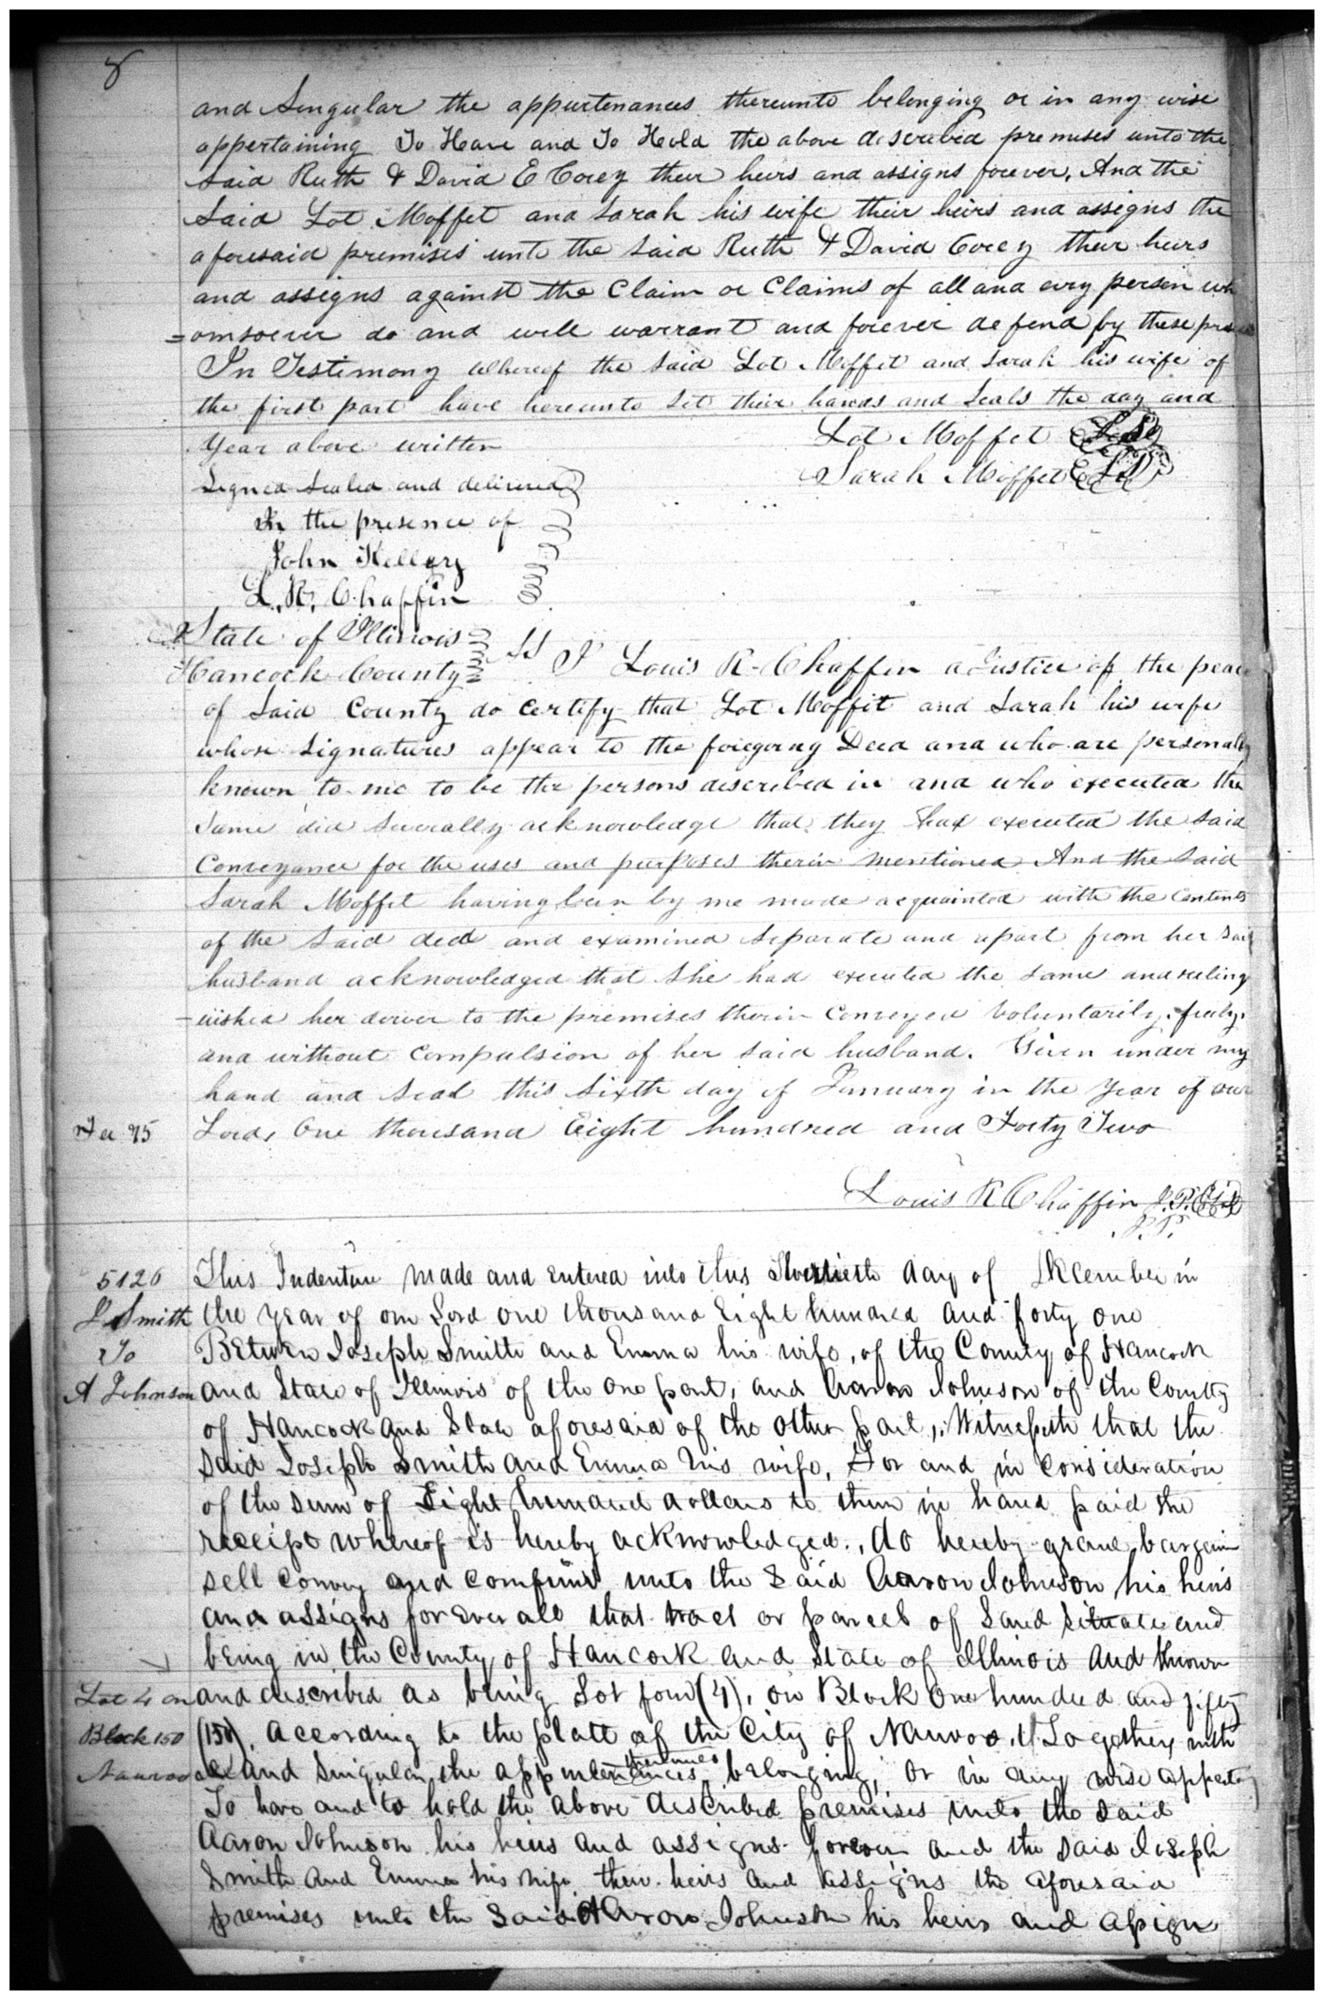 8
and Singular the appurtenances thereunto belonging or in any wise
appertaining To Have and To Hold the above described premises unto the
said Ruth & David E Corey their heirs and assigns forever, And the
said Lot Moffet and Sarah his wife their heirs and assigns the
aforesaid premises unto the said Ruth & David Corey their heirs
and assigns against the Claim or Claims of all and evry person wh
=omsoever do and will warrant and forever defend by these
In Testimony whereof the said Lot Moffet and Sarah his wife of
the first part have hereunto Set their hands and Seals the day and
Year above written Lot Moffet
Sarah Moffet
Signed Sealed and delivered
In the presence of
John Kellery
L. R. Chaffin
State of Illinois
Hancock County SS I Louis R. Chaffin a Justice of the peace
of Said County do Certify that Lot Moffit and Sarah his wife
whose Signatures appear to the foregoing Deed and who are personally
known to me to be the persons described in and who executed the
Same did Severally acknowledge that they had executed the said
Conveyance for the uses and purposes therin mentioned And the Said
Sarah Moffet having been by me made acquainted with the Contents
of the Said deed and examined Separate and apart from her Said
husband acknowledged that She had executed the Same and relinq
-uished her dower to the premises therin Conveyed Voluntarily, freely,
and without Compulsion of her said husband. Given under my
hand and Seal this Sixth day of January in the Year of our
Fee 75 Lord, One thousand Eight hundred and Forty Two
Louis R Chaffin J.P.
J.P.
5126 This Indenture made and entered into this day of December in
J Smith the Year of our Lord one thousand Eight hundred and forty one
To Between Joseph Smith and Emma his wife, of the County of Hancock
A Johnson and State of Illinois of the one part, and Aaron Johnson of the County
of Hancock and State aforesaid of the other part, Witnesseth that the
said Joseph Smith and Emma his wife, For and in Consideration
of the sum of Eight hundred dollars to them in hand paid the
receipt whereof is hereby acknowledged, do hereby grant, bargain
sell convey and confirm unto the said Aaron Johnson his heirs
and assigns forever all that tract or parcel of Land Situate and
being in the County of Hancock and State of Illinois and known
Lot 4 on and described as being Lot four (4), on Block One hundred and fifty
Block 150 (150), According to the platt of the City of Nauvoo, Together with
Nauvoo all and Singular the appurtenances thereunto belonging, or in any wise
To have and to hold the above described premises unto the said
Aaron Johnson his heirs and assigns forever and the said Joseph
Smith and Emma his wife their heirs and assigns the aforesaid
premises unto the said Aaron Johnson his heirs and assign